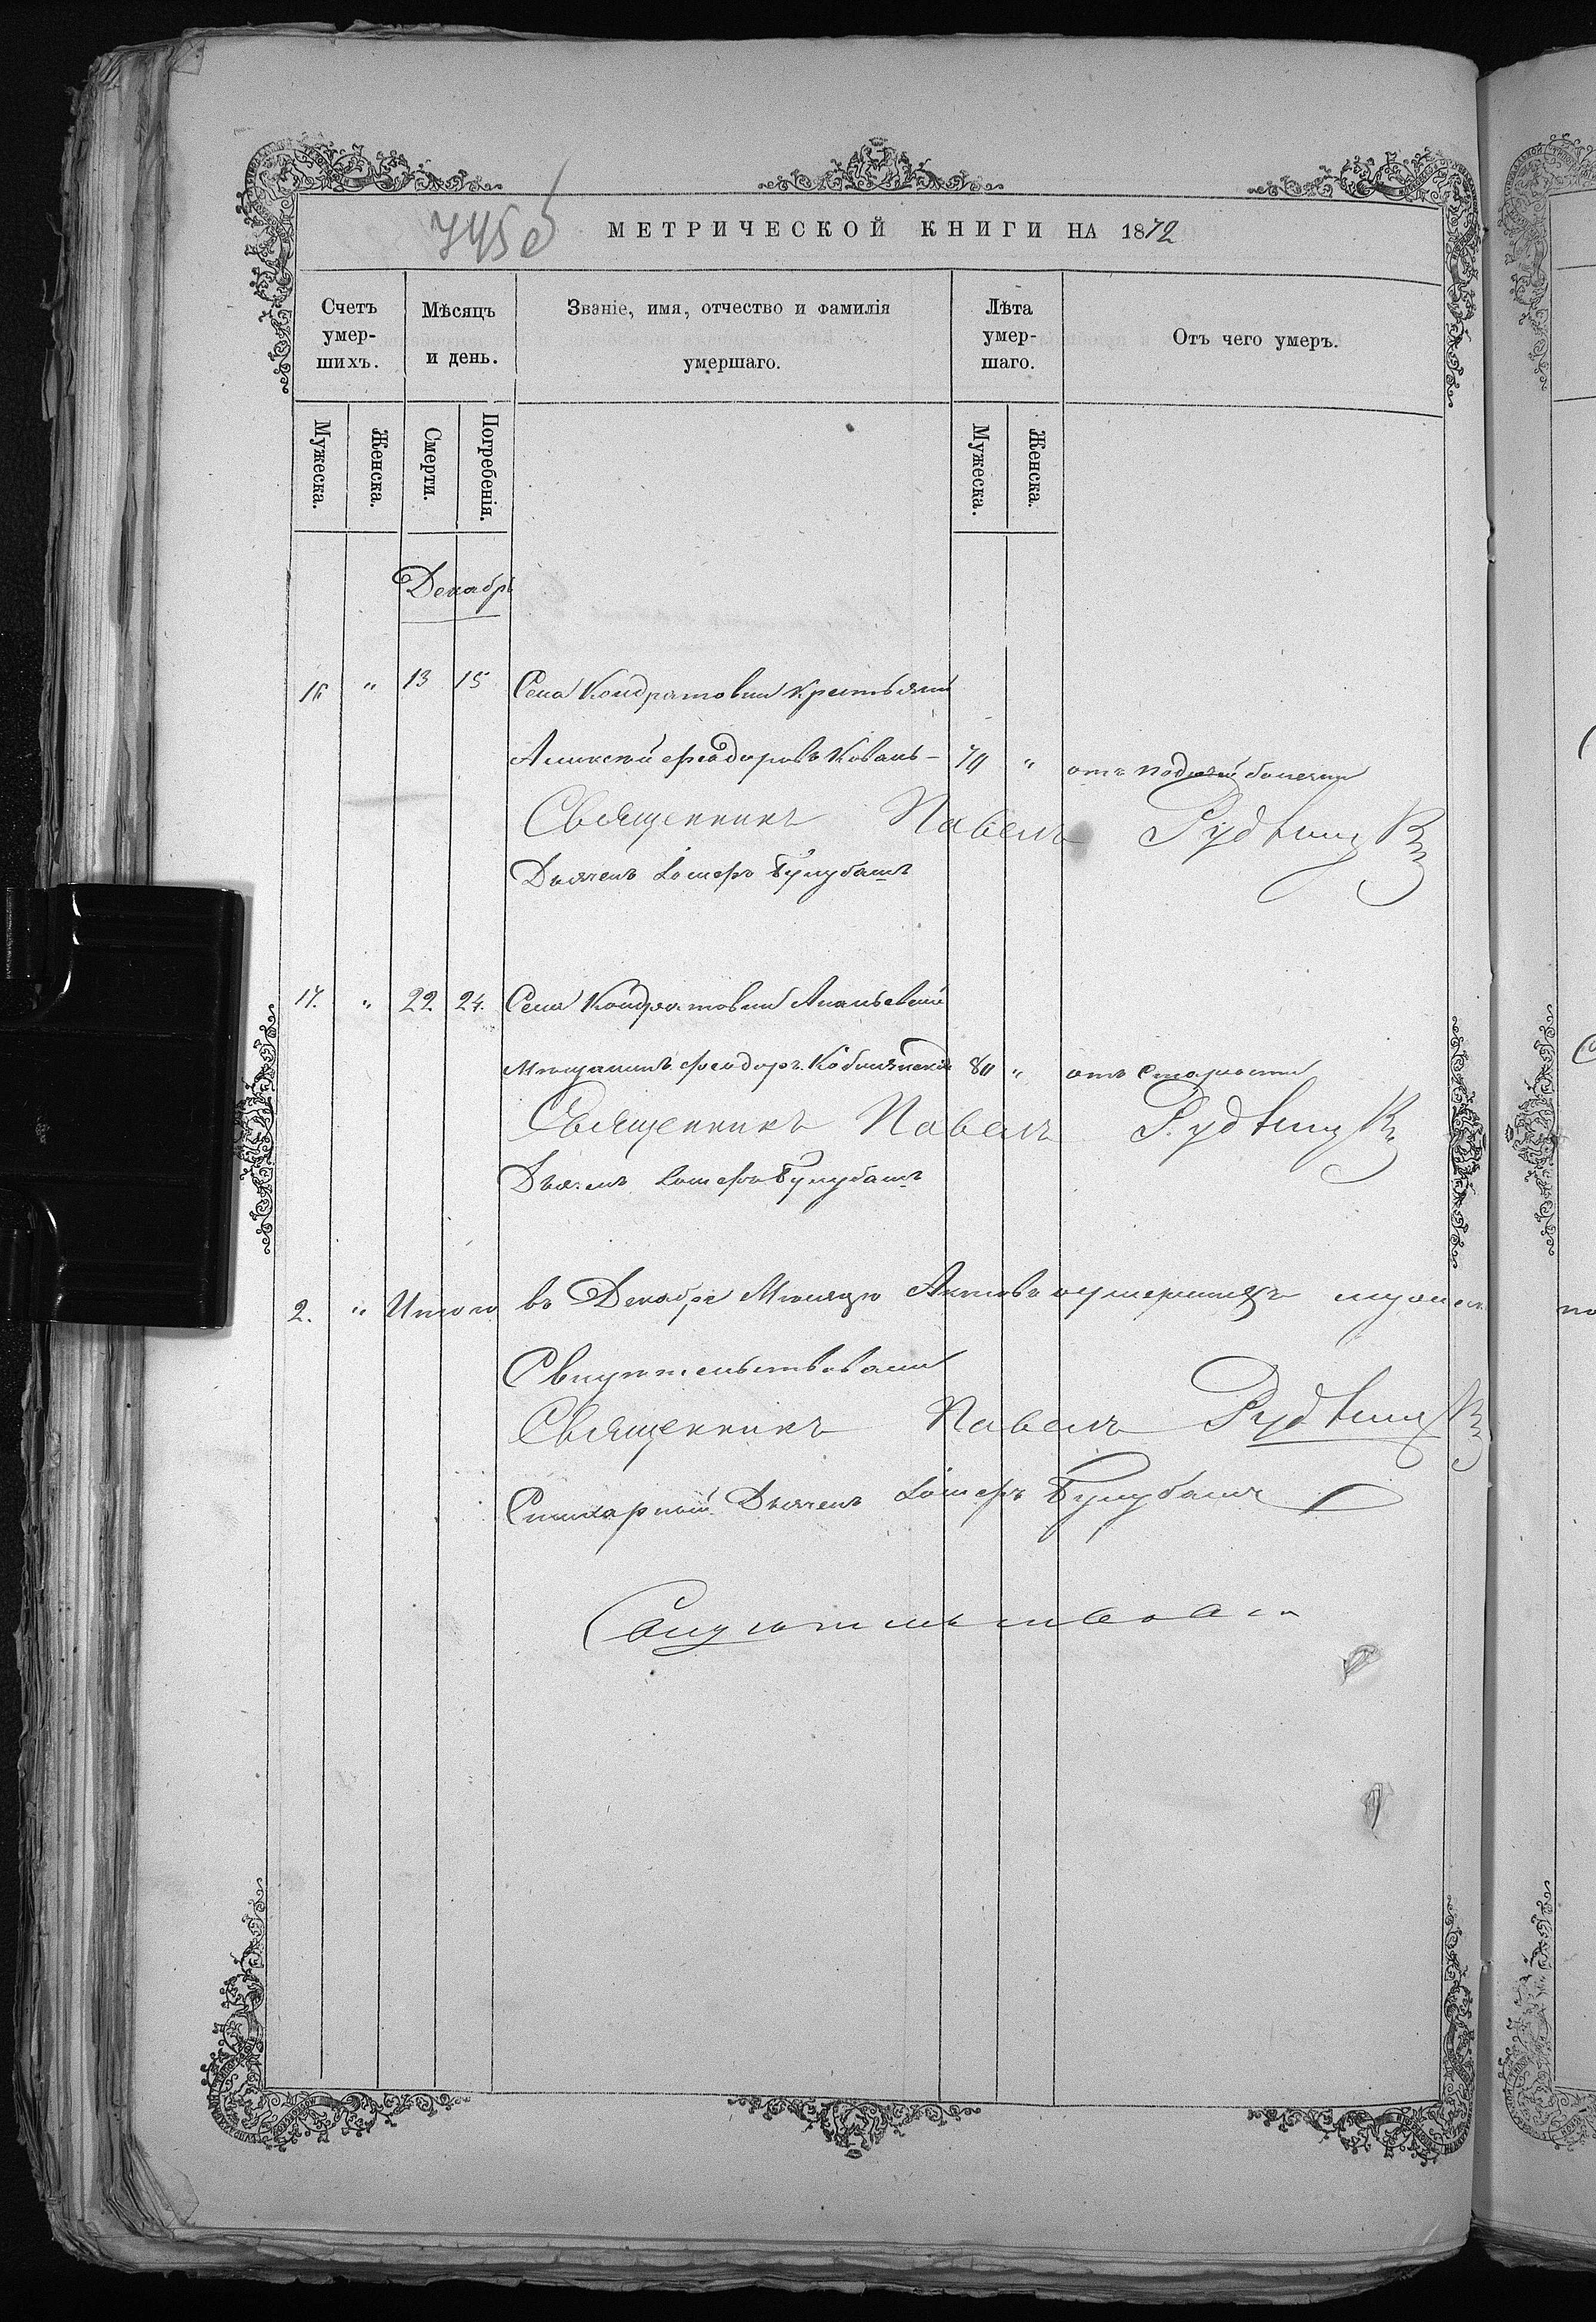 745 об
МЕТРИЧЕСКОЙ КНИГИ НА 1872
Счетъ умер-шихъ.
Мѣсяцъ и день.
Званіе, имя, отчество и фамилія умершаго.
Лѣта умер-шаго.
Отъ чего умеръ.
Мужеска.
Женска.
Смерти.
Погребенія.
Мужеска.
Женска.
Декабрь
16 " 13 15 Села Кондратовки крестьянин
Алексей Феодоровъ Коваль - 70 " отъ болезни
Священникъ Павелъ Рудницк
Дьячекъ Іосифъ Булубашъ
17. " 22 24. Села Кондратовки Ананьевский
мещанинъ Феодоръ 80 " отъ старости
Священникъ Павелъ Рудницк
Дьячекъ Іосифъ Булубашъ
2. " Итого въ Декабре месяце Актовъ умершихъ мужеск
Свидетельствовали
Священникъ Павелъ Рудницк
Стихарный Дьячекъ Іосифъ Булубашъ